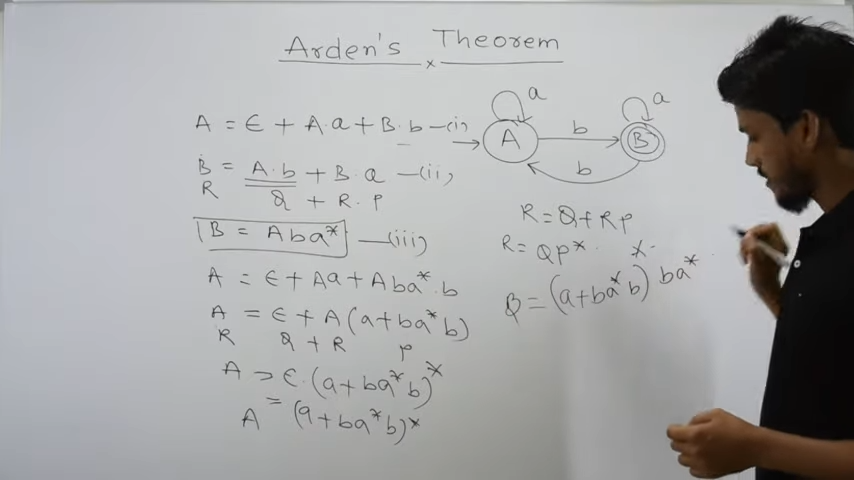 Arden's Theorem
A = ϵ + A.a + B.b —(i)
B = A.b + B.a —(ii)
R Q + R.P
B = Aba* —(iii)
A = ϵ + Aa + Aba*.b
A = ϵ + A(a+ba*b)
R Q + R P
A = ϵ.(a+ba*b)*
A = (a+ba*b)*
a
a
A
b
B
b
R = Q+RP
R = QP*
B = (a+ba*b)* ba*